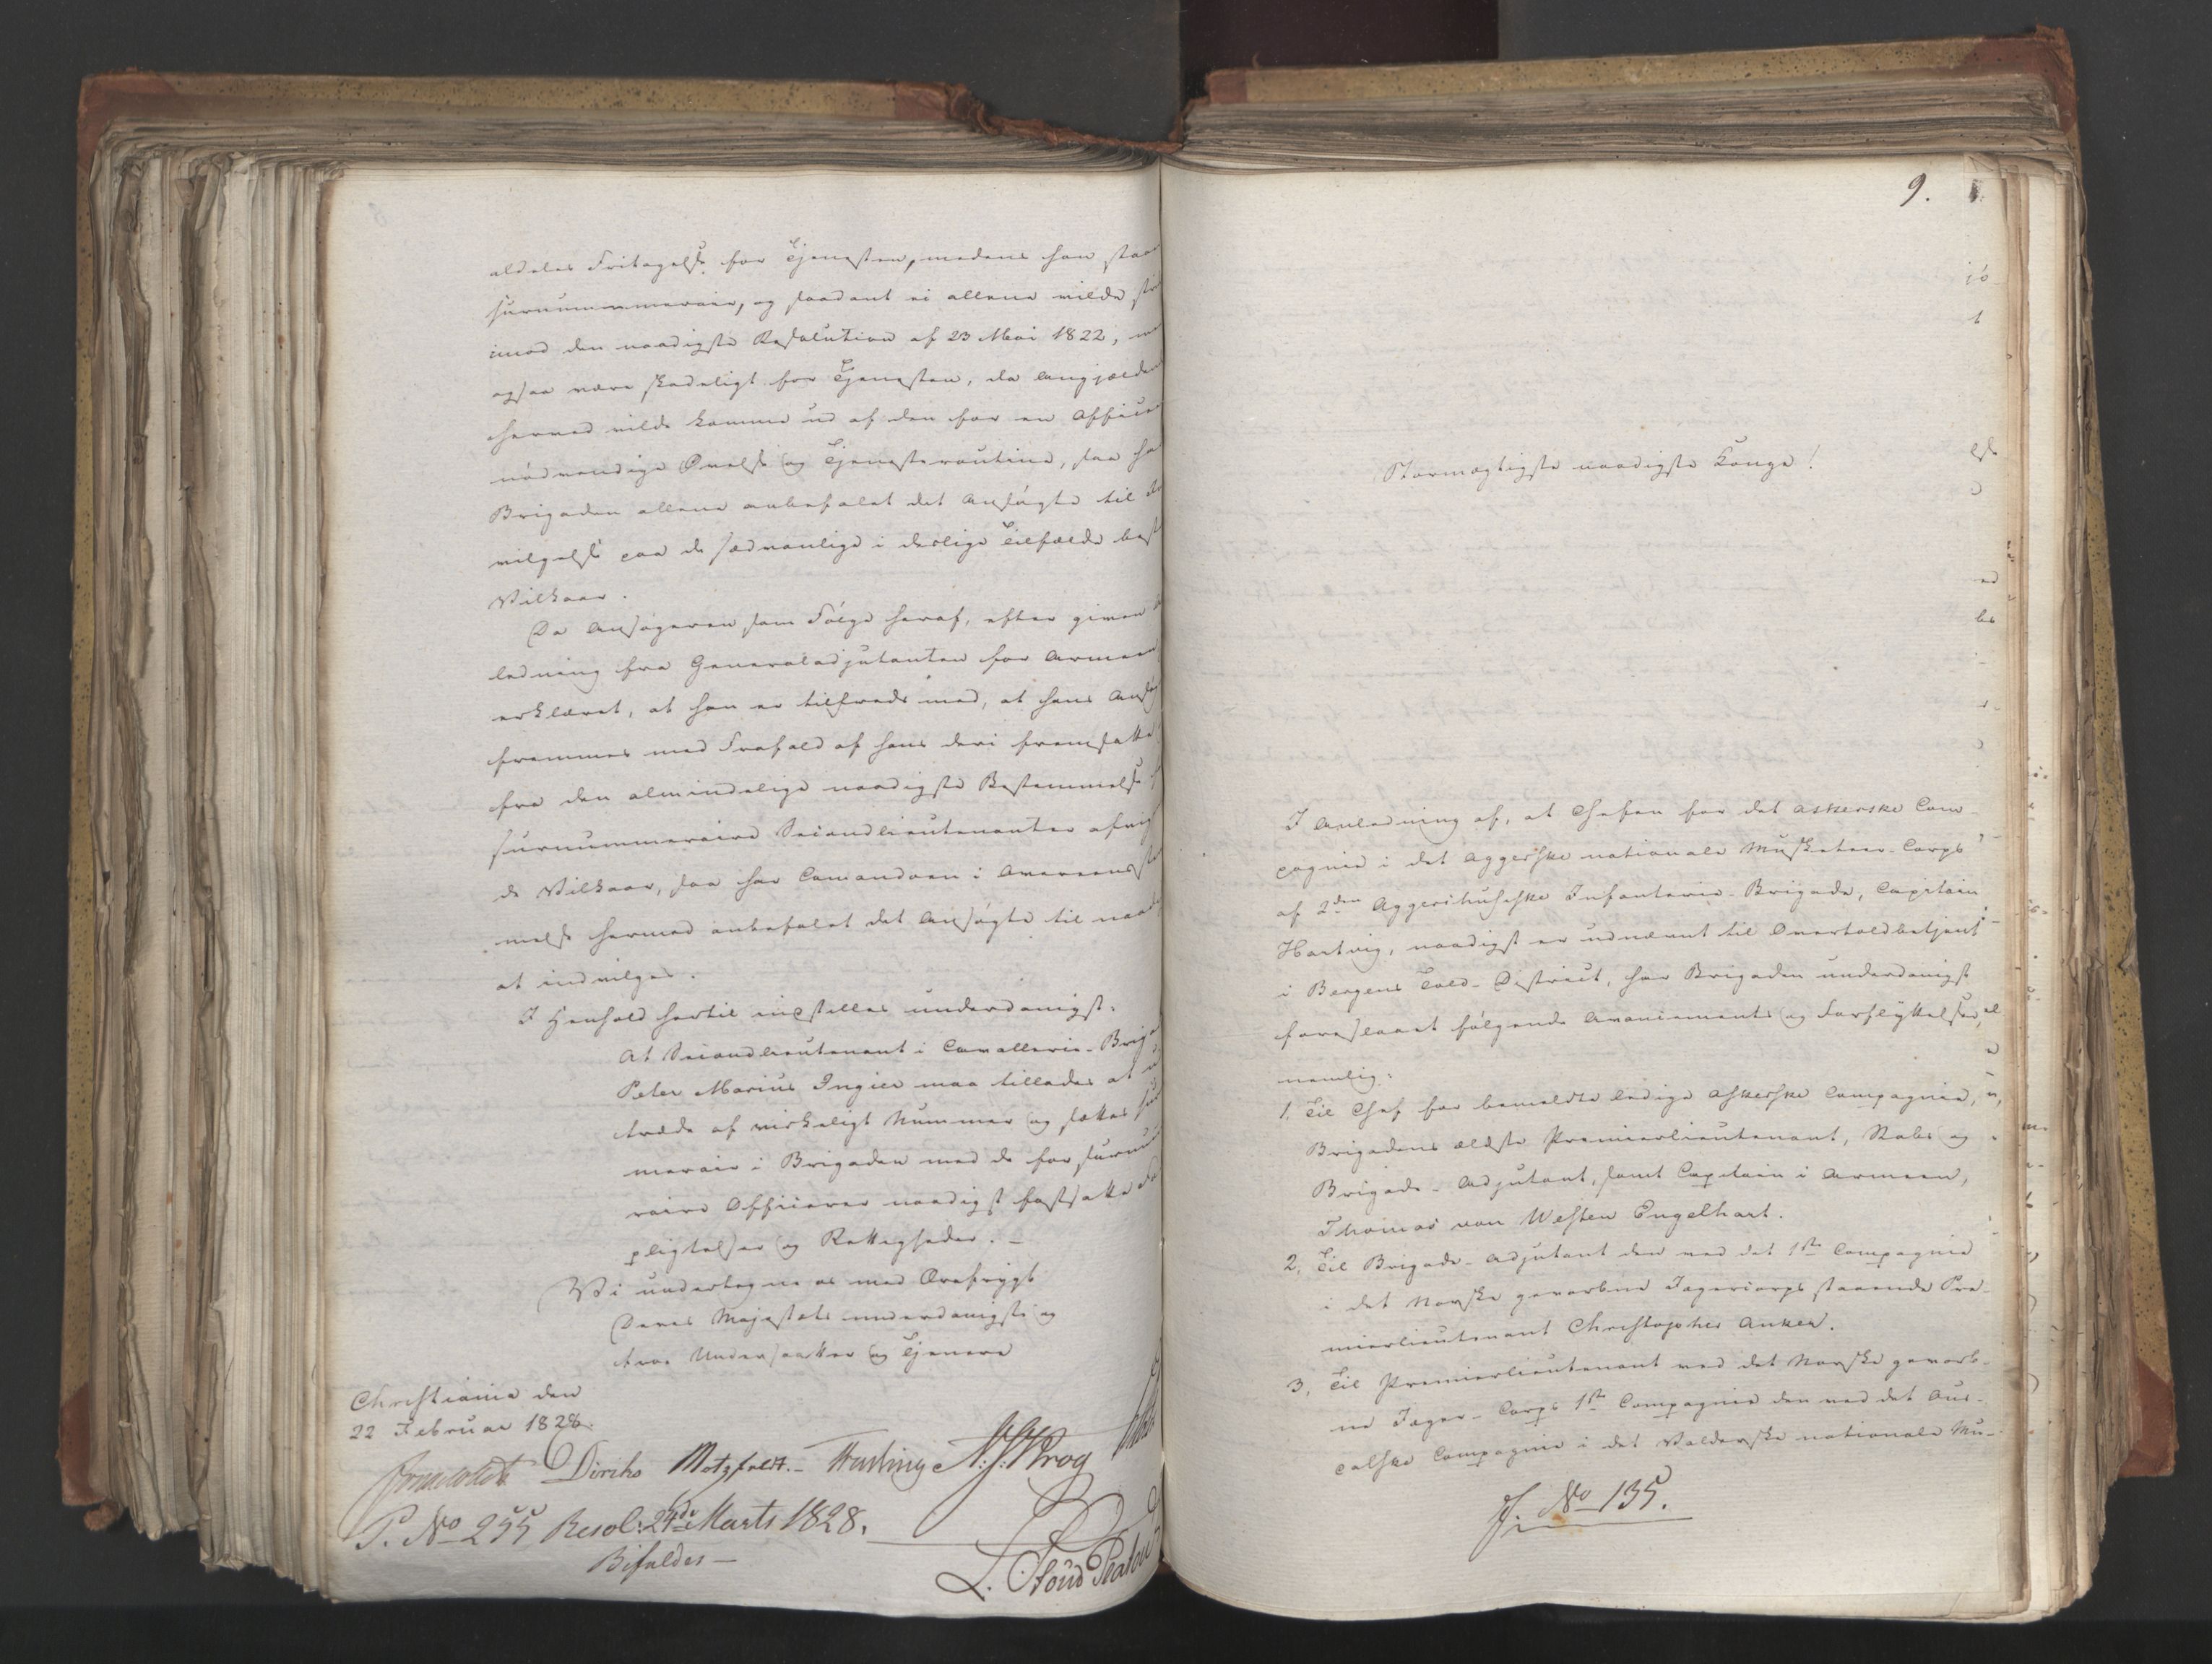 aldeles Fritagelse for Tjenesten, medens han staar
surnummerair, og saadant ei allene vilde
imod den naadigste Resolution af 23 Mai 1822,
ogsaa være skadeligt for Tjenesten, da
herved vilde komme ud af den for en Officier
nødvendige Øvelse og Tjenesteroutine, saa har
Brigaden allene anbefalet det Ansøgte til
vilgelse paa de sædvanlige i deslige Tilfælde
Vilkaar.
Da Ansøgeren som Følge heraf, efter given
ledning fra Generaladjutanten for Armeen
erklæret, at han er tilfreds med, at hans
fremmes med Frafald af hans deri fremsatte
fra den almindelige naadigste Bestemmelse
surnummeraire Secondlieutenanter
de Vilkaar, saa har Comandoen i
melse hermed anbefalet det Ansøgte til
at indvilges.
I Henhold hertil indstilles underdanigst:
At Secondlieutenant i Cavallerie-
Peter Marius Ingier maa tillades at
træde af virkeligt Nummer og sættes
merair i Brigaden med de for
raire Officierer naadigst fastsatte
pligtelser og Rettigheder. –
Vi undertegne os med Ærefrygt
Deres Majestæts underdanigste og
troe Undersaatter og Tjenere
Christiania den
22 Februar 1828.
Diriks Motzfeldt. – N. J. Krog
P. No 255 Resol: 24de Marts 1828.
Bifaldes –
L.
9.
Stormægtigste naadigste Konge!
I Anledning af, at Chefen for det Askerske Com-
pagnie i det Aggerske nationale Musketeer-Corps
af 2den Aggershusiske Infanterie-Brigade, Capitain
Hartvig, naadigst er udnævnt til Overtoldbetjent
i Bergens Told-District, har Brigaden underdanigst
foreslaaet følgende Avancements og Forflyttelser,
nemlig:
1. Til Chef for bemeldte ledige Askerske Compagnie,
Brigadens ældste Premierlieutenant, Stabs og
Brigade-Adjutant, samt Capitain i Armeen,
Thomas von Westen Engelhart.
2. Til Brigade-Adjutant den ved det 1ste Compagnie
i det Norske gevorbne Jægercorps staaende Pre-
mierlieutenant Christopher Anker.
3. Til Premierlieutenant ved det Norske gevorb-
ne Jæger-Corps 1ste Compagnie den ved det Aur-
dalske Compagnie i det Valderske nationale Mu-
J. No 135.